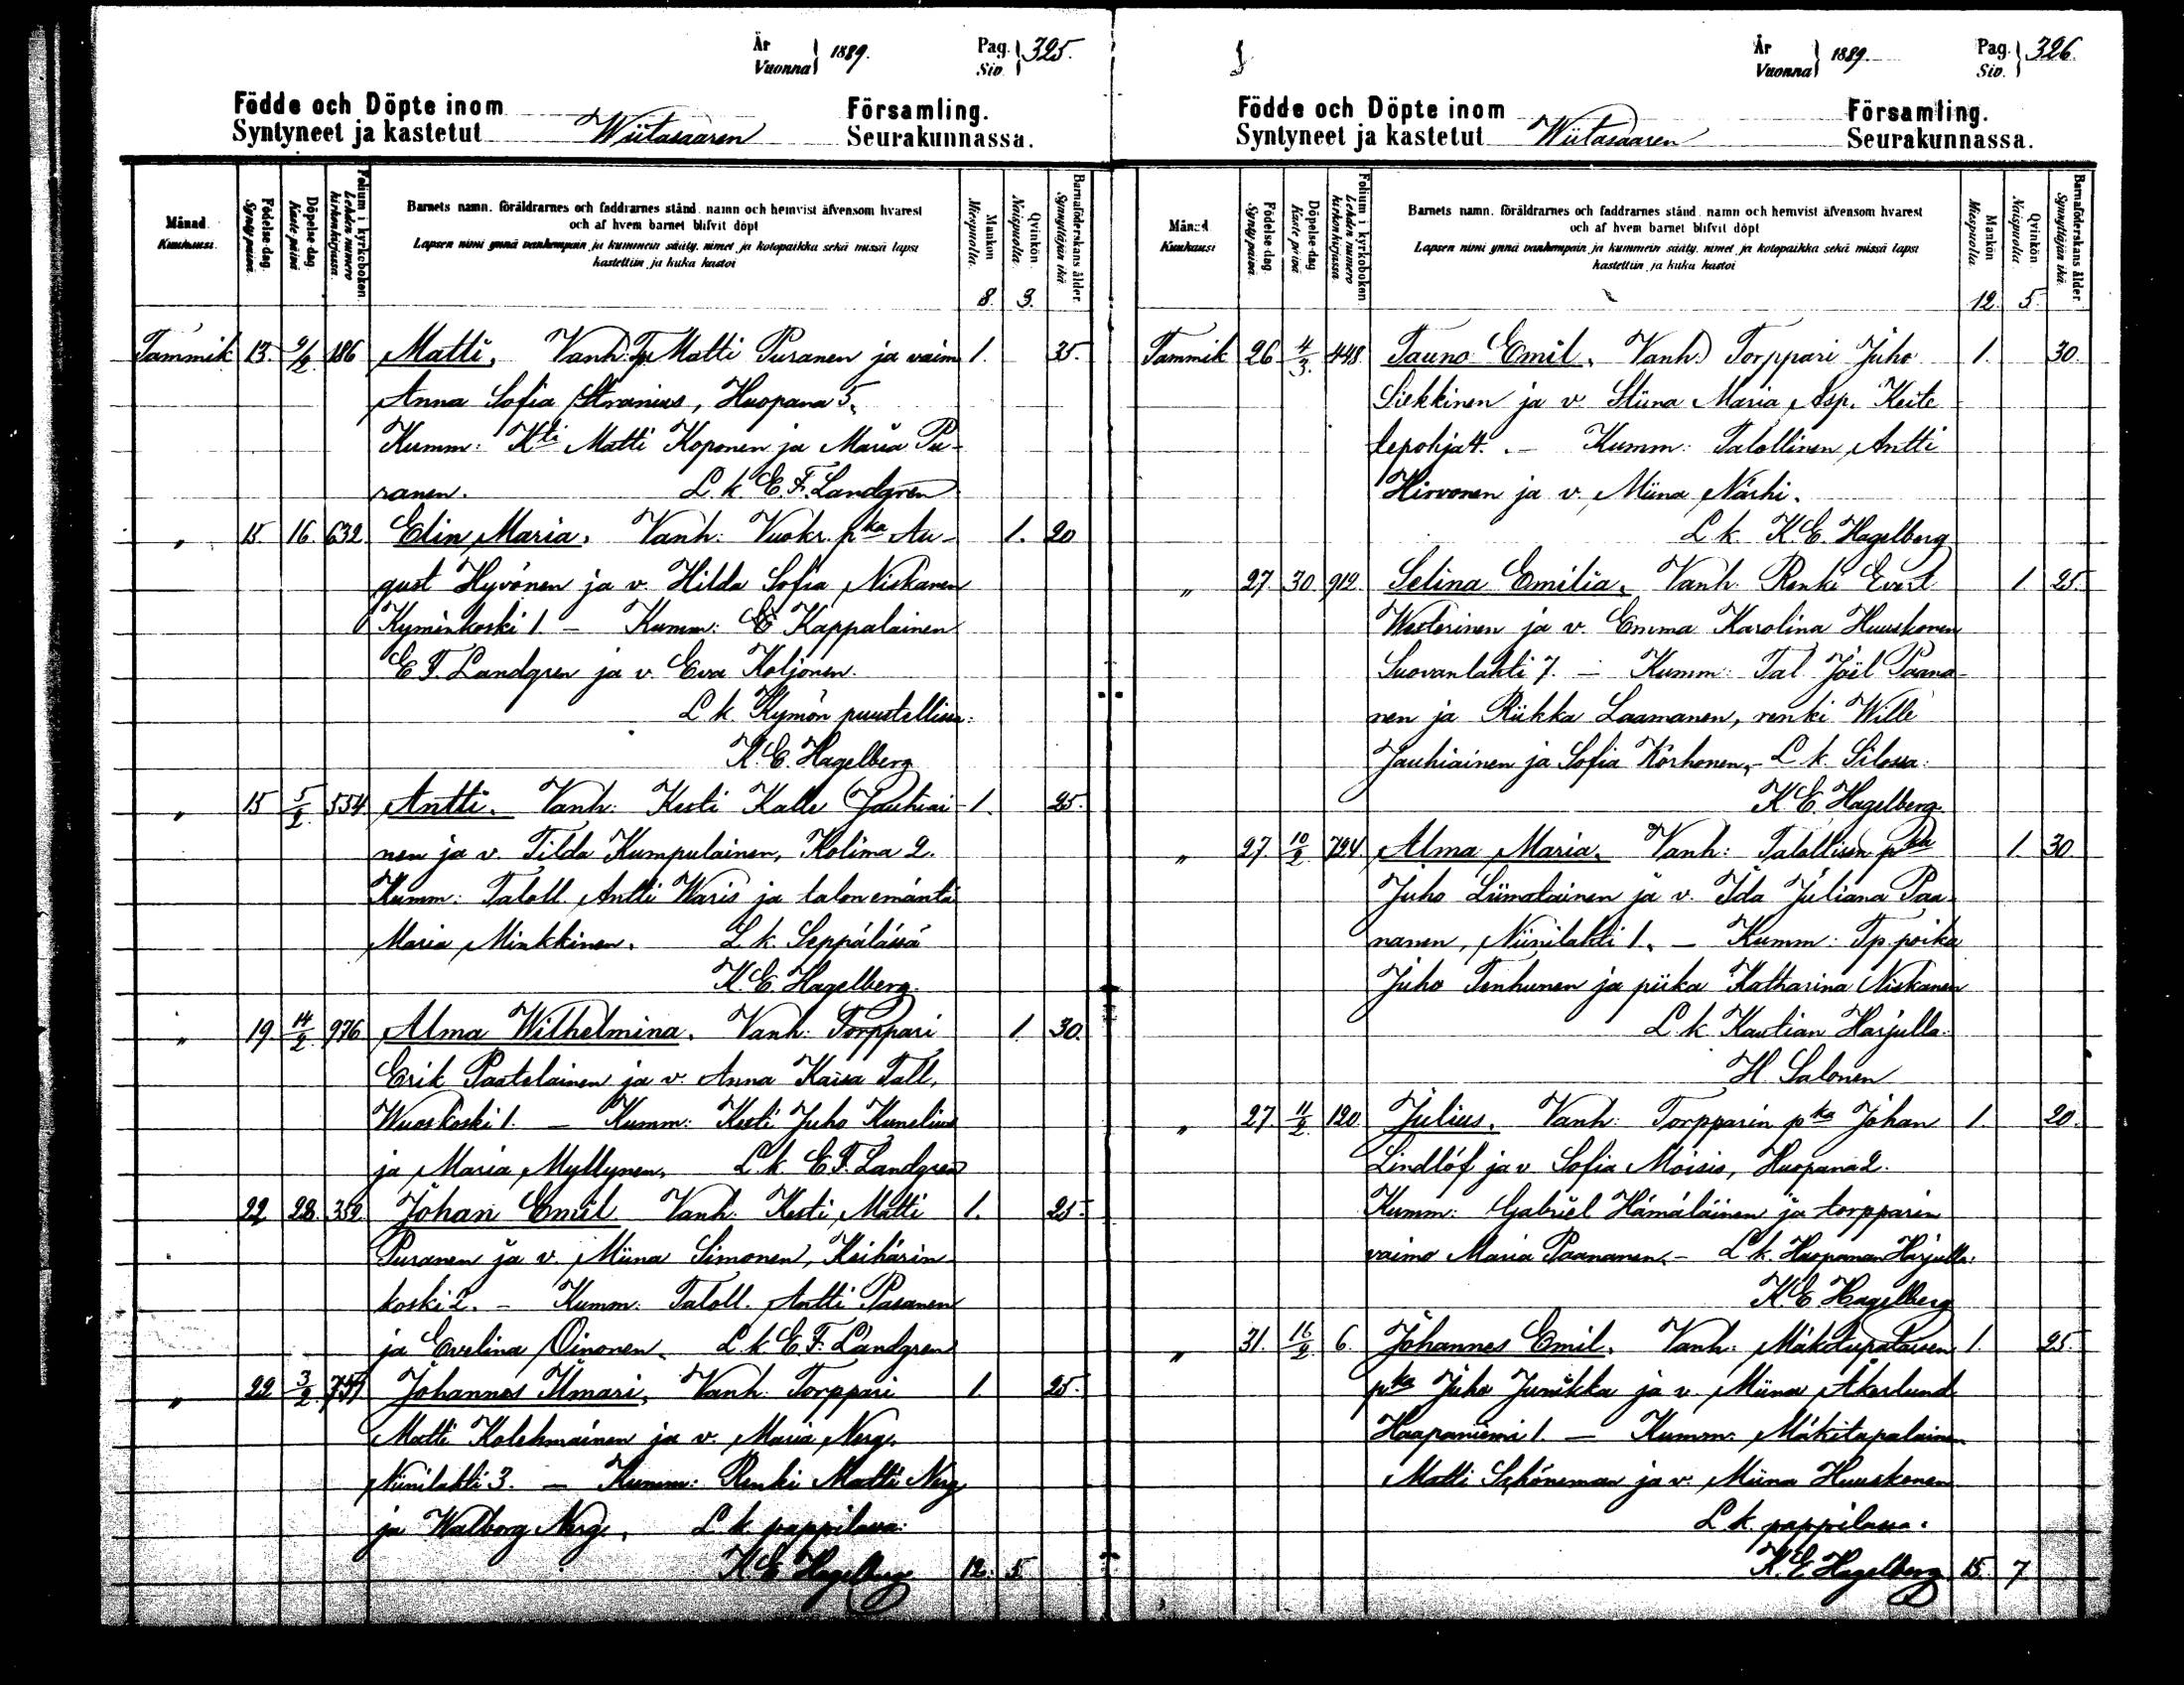 År Vuonna 1889. Pag. Siv. 325.
Födde och Döpte inom Församling.
Syntyneet ja kastetut Wiitasaaren Seurakunnassa.
Månad Kuukausi.
Födelse-dag. Synty päivä
Döpelse-dag Kaste päivä
Folium i kyrkoboken. Lehden numero kirkonkirjassa.
Barnets namn. föräldrarnes och faddrarnes stånd. namn och hemvist äfvensom hvarest
och af hvem barnet blifvit döpt
Lapsen nimi ynnä vanhempain ja kummein sääty. nimet ja kotopaikka sekä missä lapsi
kastettiin ja kuka kastoi
Mankön Miespuolia.
Qvinkön. Naispuolia.
Barnaföderskans ålder. Synnyttäjän ikä
8. 3.
Tammik 13. 9/2 186 Matti, Vanh: Tp. Matti Puranen ja vaim 1. 35.
Anna Sofia Stranius, Huopana 5.
Kumm: Kti Matti Koponen ja Maria Pu-
ranen. L. k. E. F. Landgren
" 15 16. 632. Elin Maria. Vanh: Vuokr. pka Au- 1. 20
gust Hyvönen ja v. Hilda Sofia Niskanen
Kyminkoski 1. – Kumm: E Kappalainen
E. F. Landgren ja v Eva Koljonen.
L k. Kymön puustellissa:
K. E. Hagelberg
" 15 5/2 554 Antti. Vanh: Kesti Kalle Jauhiai- 1. 25.
nen ja v. Tilda Kumpulainen, Kolima 2.
Kumm: Taloll. Antti Waris ja talon emäntä
Maria Minkkinen. L. k. Seppälässä
K. E. Hagelberg.
" 19. 14/2 976 Alma Wilhelmina. Vanh: Torppari 1. 30.
Erik Paatelainen ja v. Anna Kaisa Tall,
Wuoskoski 1. – Kumm: Kesti Juho Kunelius
ja Maria Myllynen. L. k. E. F. Landgren
22 28. 352. Johan Emil Vanh. Kesti Matti 1. 25.
Puranen ja v. Miina Simonen, Keihärin-
koski 2. – Kumm: Taloll. Antti Pasanen
ja Evelina Oinonen. L. k. E. F. Landgren
" 22 3/2 Johannes Ilmari, Vanh. Torppari 1. 25.
Matti Kolehmainen ja v. Maria Nerg.
Niinilahti 3. – Kumm: Renki Matti Nerg
ja Walborg Nerg. L. k. pappilassa:
K E Hagelberg 12. 5
År Vuonna 1889. Pag. Siv. 326.
Födde och Döpte inom Församling.
Syntyneet ja kastetut Wiitasaaren Seurakunnassa.
Månad Kuukausi
Födelse-dag. Synty päivä
Döpelse-dag Kaste päivä
Folium i kyrkoboken. Lehden numero kirkonkirjassa.
Barnets namn. föräldrarnes och faddrarnes stånd. namn och hemvist äfvensom hvarest
och af hvem barnet blifvit döpt
Lapsen nimi ynnä vanhempain ja kummein sääty. nimet ja kotopaikka sekä missä lapsi
kastettiin ja kuka kastoi
Mankön Miespuolia
Qvinkön. Naispuolia
Barnaföderskans ålder. Synnyttäjän ikä.
12. 5.
Tammik 26 4/3. 448. Tauno Emil. Vanh. Torppari Juho 1. 30.
Siekkinen ja v Stiina Maria Asp. Keite-
lepohja 4. – Kumm: Talollinen Antti
Hirvonen ja v. Miina Närhi.
L k. K. E. Hagelberg
" 27. 30. 912. Selina Emilia. Vanh. Renki Evert 1. 25.
Westerinen ja v. Emma Karolina Huuskonen
Suovanlahti 7. – Kumm: Tal. Joel Paana-
nen ja Riikka Laamanen, renki Wille
Jauhiainen ja Sofia Korhonen, – L k. Silossa:
K E. Hagelberg.
" 27. 10/2 724 Alma Maria. Vanh: Talollisen pka 1. 30
Juho Liimatainen ja v. Ida Juliana Paa-
nanen, Niinilahti 1. – Kumm: Tp. poika
Juho Tenhunen ja piika Katharina Niskanen
L. k. Kautian Harjulla:
H. Salonen
" 27. 11/2 120. Julius. Vanh: Torpparin pka Johan 1. 20.
Lindlöf ja v Sofia Moisio, Huopana 2.
Kumm: Gabriel Hämäläinen ja torpparin
vaimo Maria Paananen. – L. k. Huopanan Harjulla:
K. E. Hagelberg
" 31. 16/2 6. Johannes Emil. Vanh: Mäkitupalaisen 1. 25.
pka Juho Junikka ja v. Miina Åkerlund
Haapaniemi 1. – Kumm: Mäkitupalainen
Matti Schöneman ja v. Miina Huuskonen
L. k. pappilassa:
K. E. Hagelberg. 15. 7